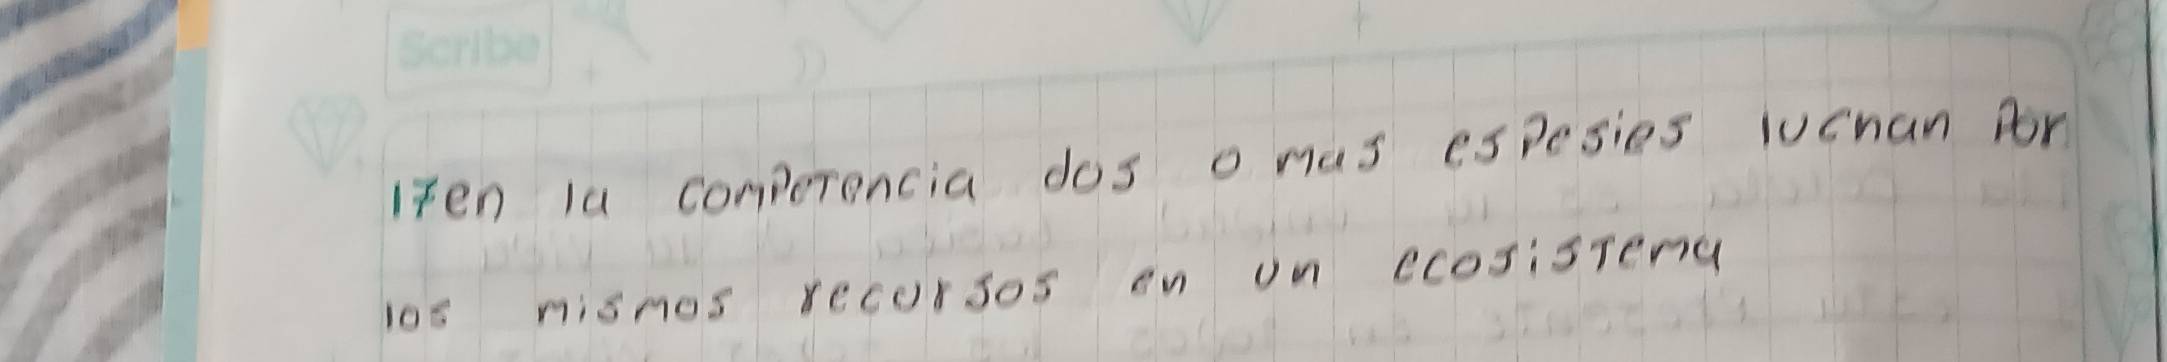 Scribe
17en la competencia dos o mas espesies luchan por
los mismos recursos en un ecosistema